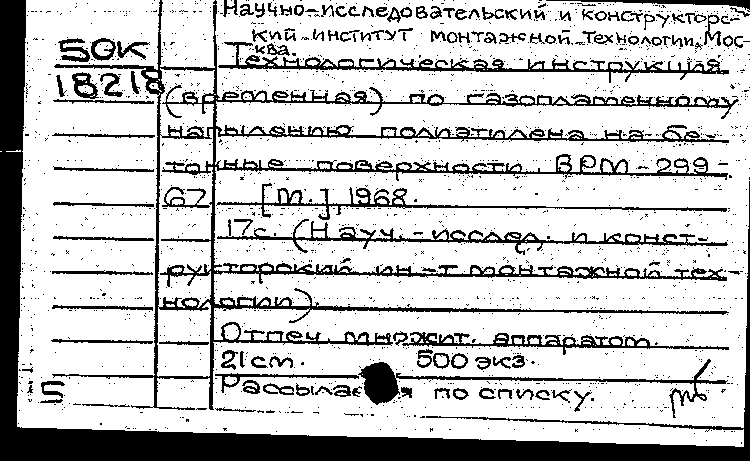 Научно-исследовательский и конструкторс-
кий институт монтажной технологии, Мос-
ква.
50К
18218
Технологическая инструкция
(временная) по газопламенному
напылению полиэтилена на бе-
тонные поверхности. ВРМ-299-
67. [М.], 1968.
17с. (Науч.-исслед. и конст-
рукторский ин-т монтажной тех-
нологии)
Отпеч. множит. аппаратом.
21 см. 500 экз.
по списку.
5